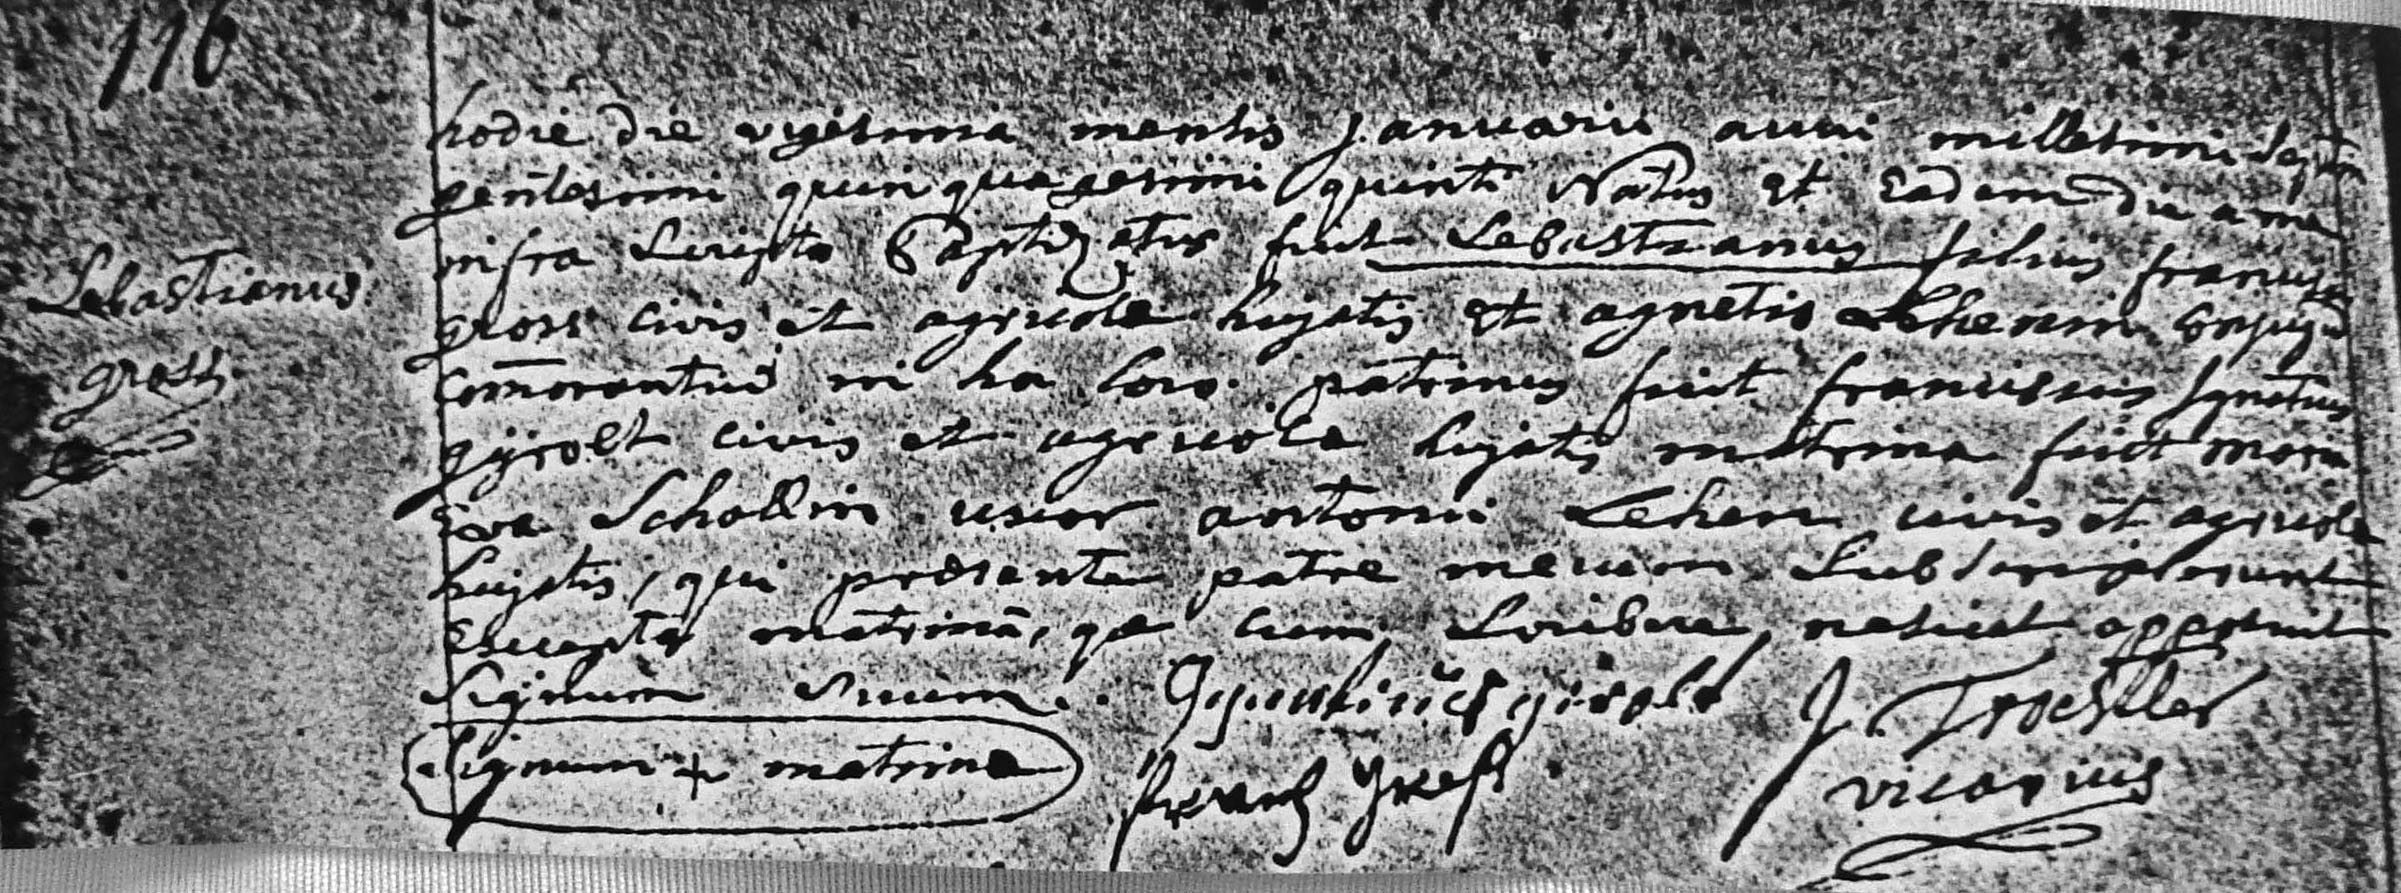 116
hodie die vigesima mensis Januarii anni millesimi septin
gentesimi quinquagesimi quinti Natus et Eadem die a me
infra scripto Baptizatus fuit Sebastianus filius francisci
Sebastianus
gross civis et agricole hujatis et agnetis Leherin conjugū
gross
com̄orantiū in hoc loco. patrinus fuit franciscus Ignatius
gÿrolt civis et agricola hujatis matrina fuit maria
Eva Schollin uxor antonii Lehen civis et agricole
hujatis, qui presente patre mecum subscripserunt
Excepta matrinā, qe cum scribere nesciat apposuit
signum suum. Ignatius girolt J. Troestler
signum + matrine frantz Groß vicarius